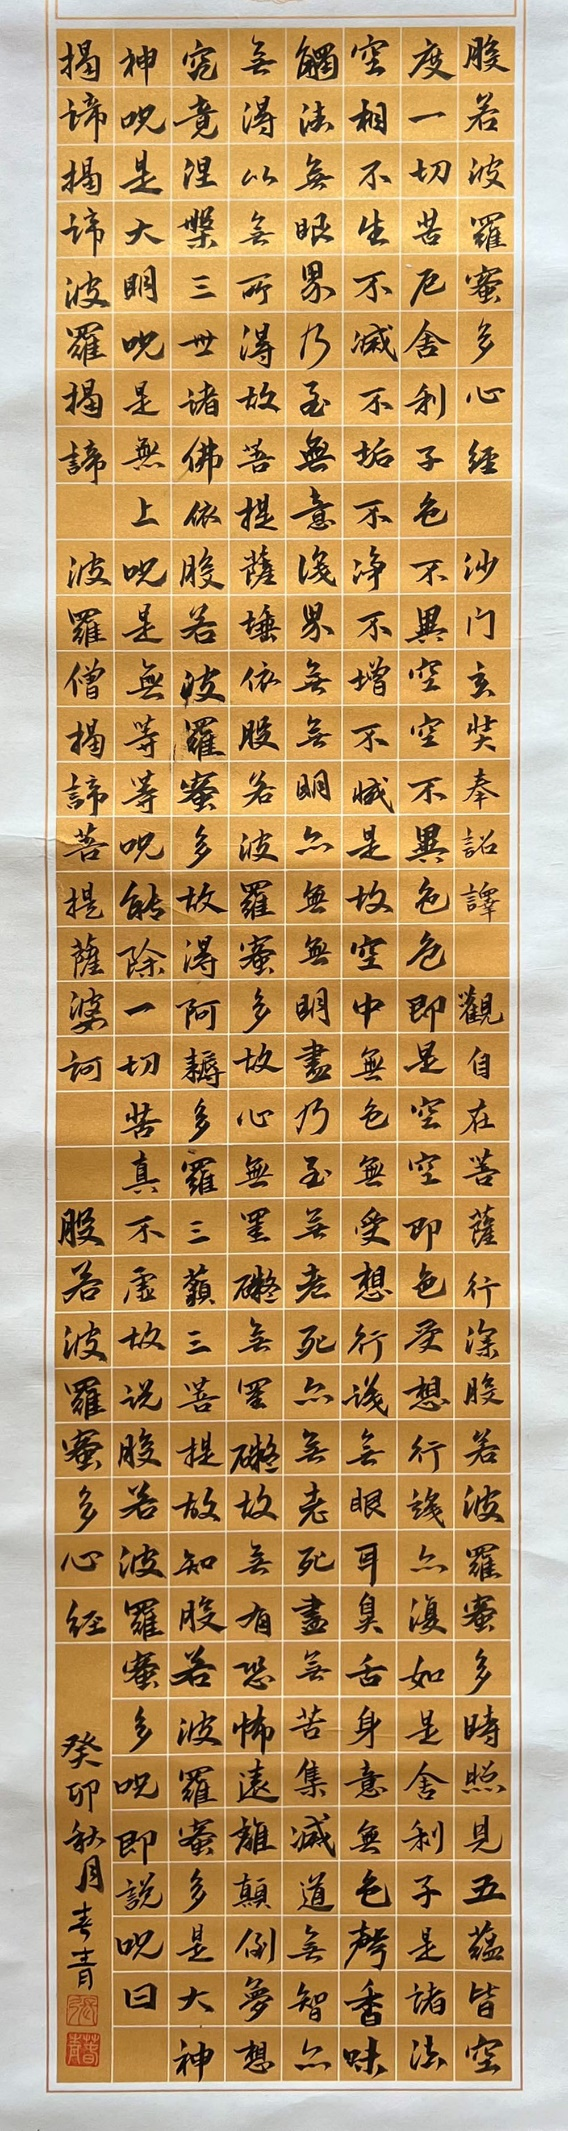 般若波羅蜜多心經 沙门玄奘奉詔譯 觀自在菩薩行深般若波羅蜜多時照見五蘊皆空
度一切苦厄舍利子色不異空空不異色色即是空空即色受想行識亦復如是舍利子是諸法
空相不生不滅不垢不净不增不滅是故空中無色無受想行識無眼耳臭舌身意無色聲香味
觸法無眼界乃至無意識界無無明亦無無明盡乃至無老死亦無老死盡無苦集滅道無智亦
無得以無所得故菩提薩埵依般若波羅蜜多故心無罣礙無罣礙故無有恐怖遠離顛倒夢想
究竟涅槃三世諸佛依般若波羅蜜多故得阿耨多羅三藐三菩提故知般若波羅蜜多是大神
神呪是大明呪是無上呪是無等等呪能除一切苦真不虛故说般若波羅蜜多呪即說呪曰
揭谛揭谛波羅揭諦 波羅僧揭諦菩提薩婆訶 般若波羅蜜多心経 癸卯秋月春青
張
春青